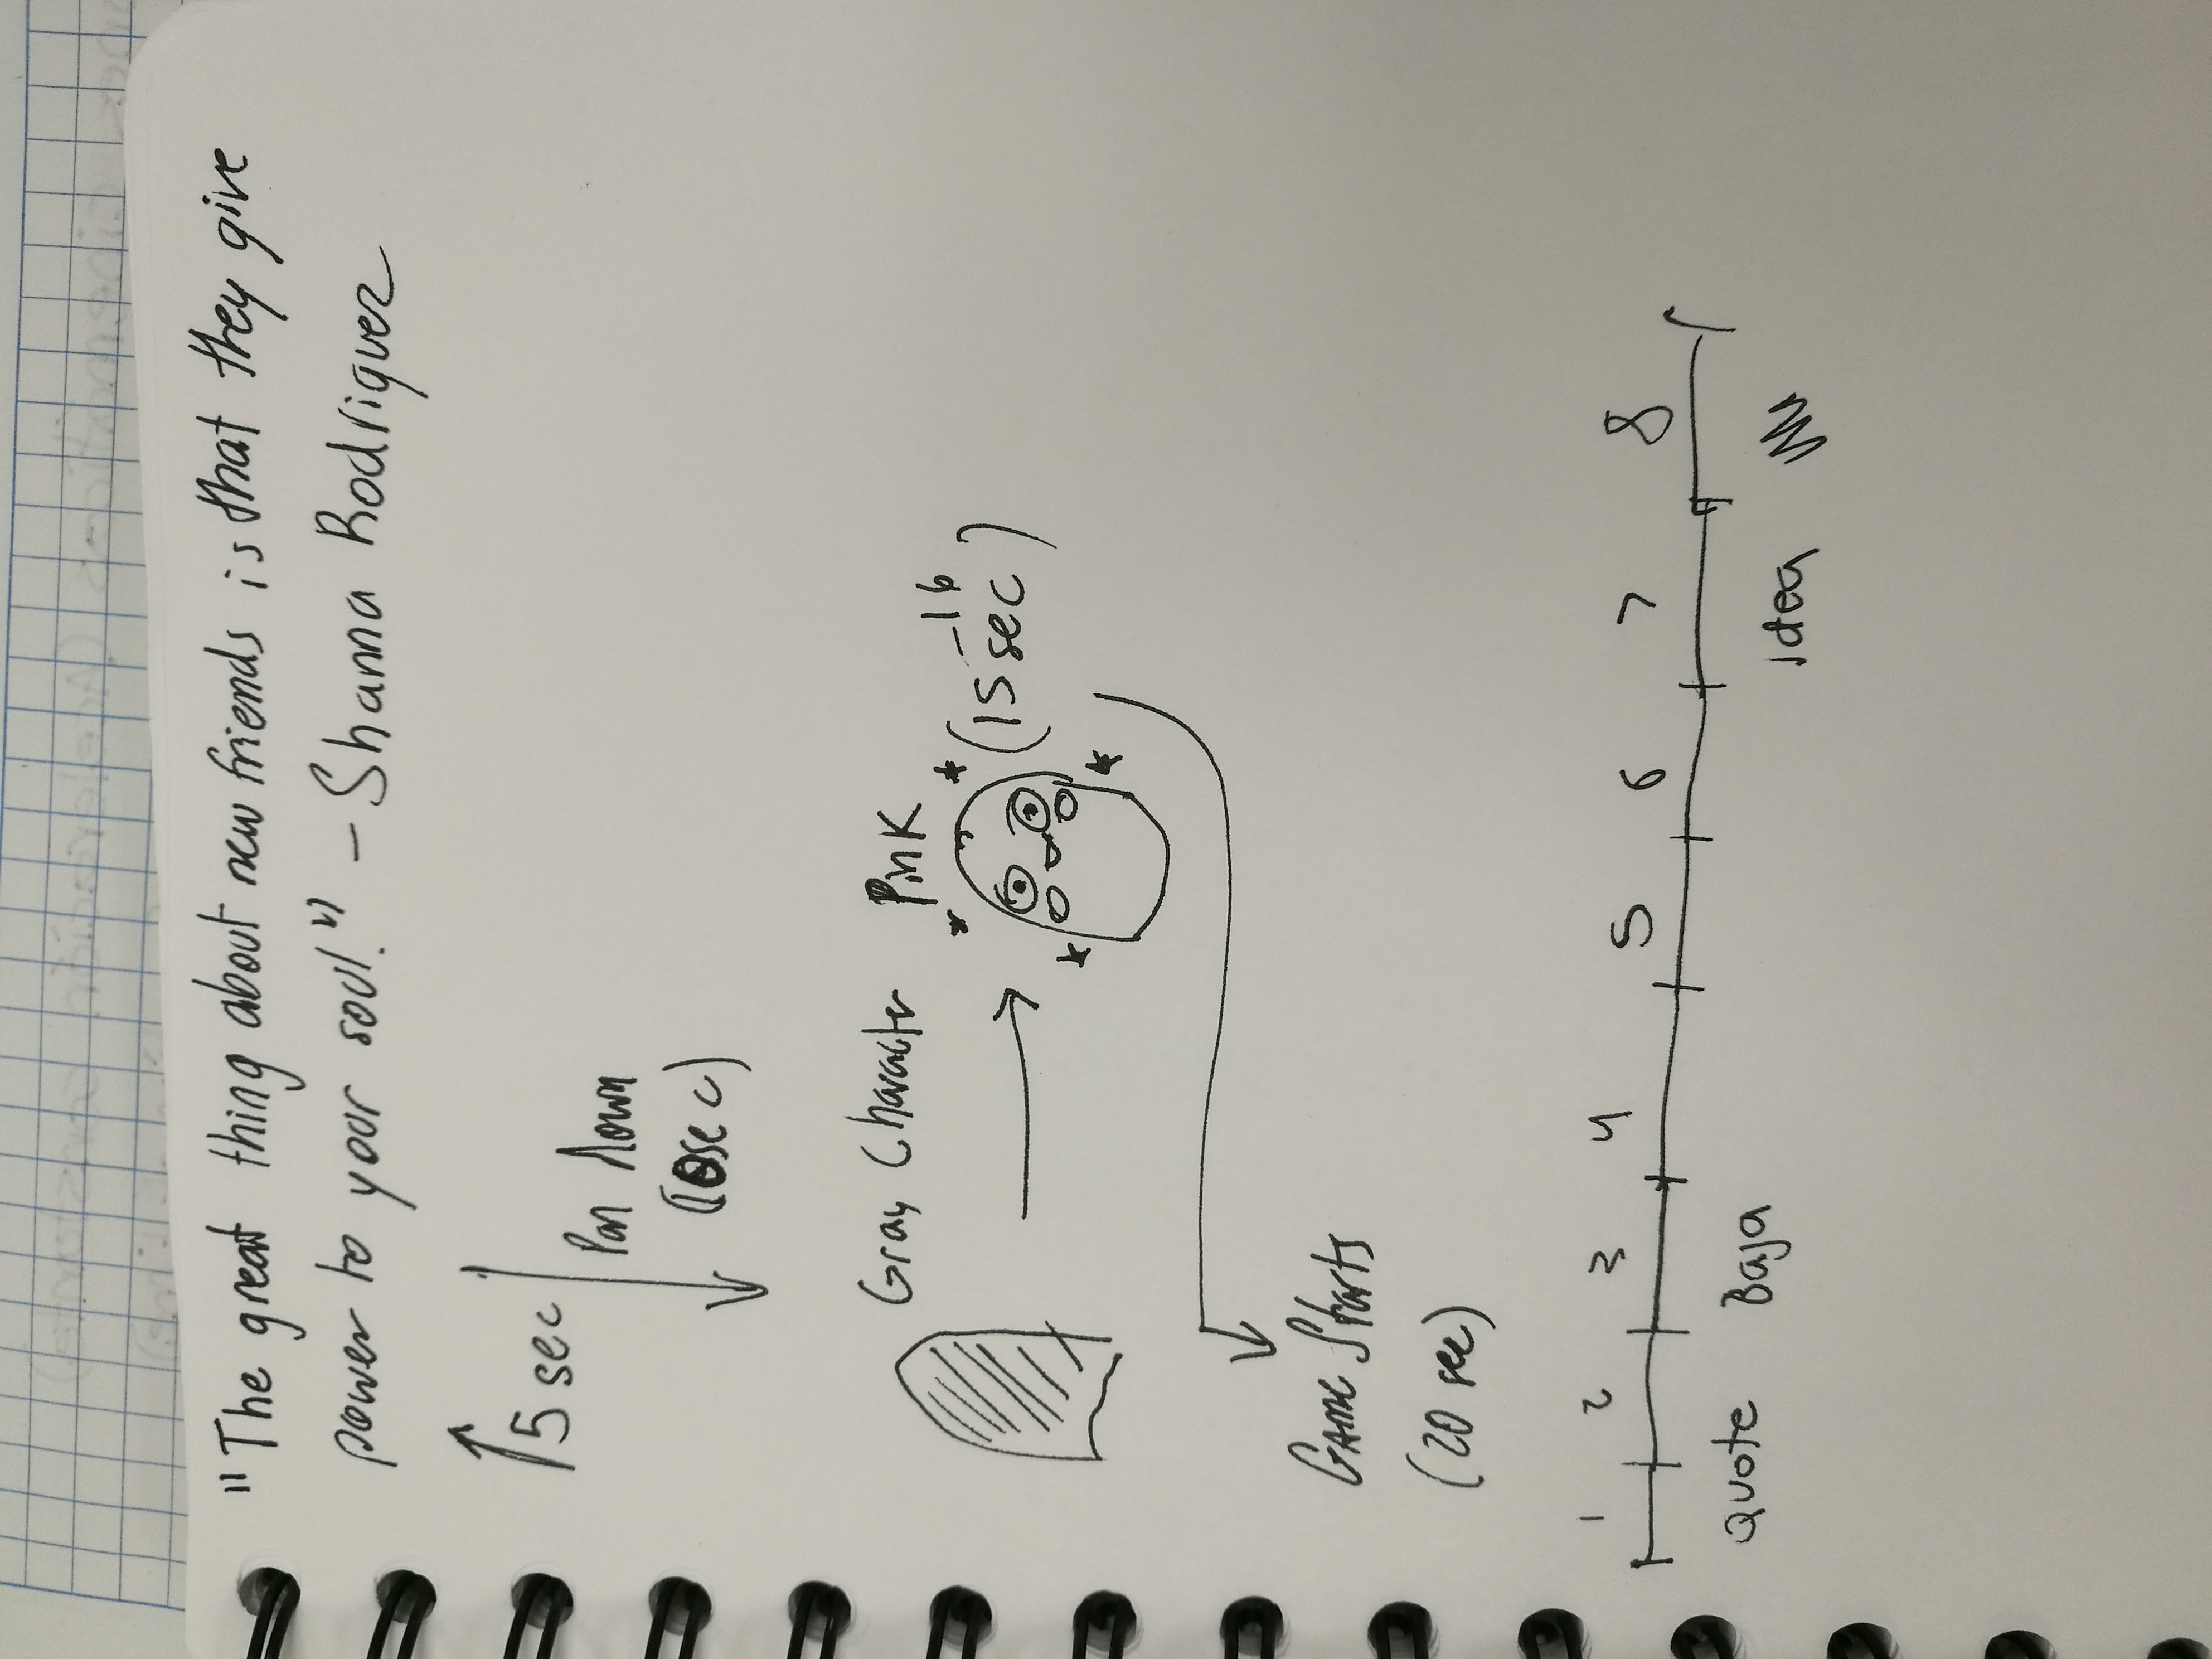 "The great thing about new friends is that they give
power to your soul." - Shanna Rodriguez
5 sec
Pan down
(10sec)
Gray Character
Pink
(15-16 sec)
Game Starts
(20 sec)
1 2 3 4 5 6 7 8
Quote Baja Idea